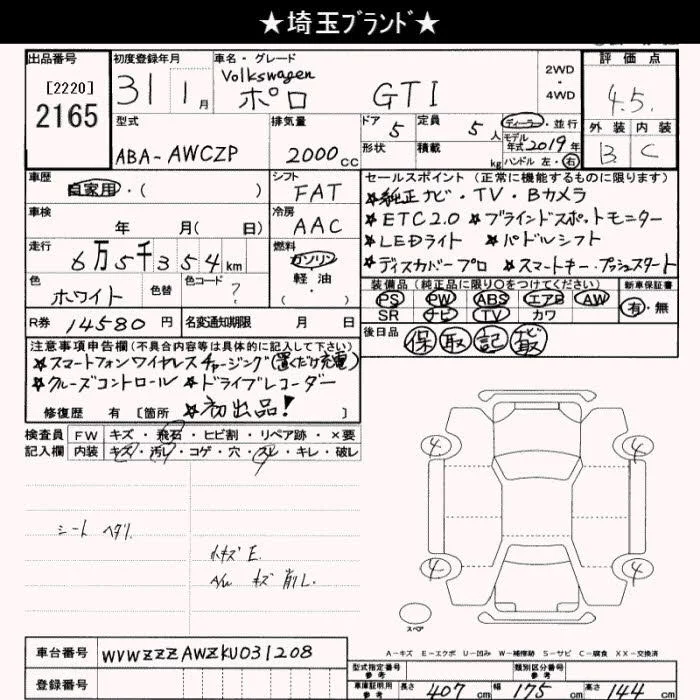 ★埼玉ブランド★
出品番号 初度登録年月 車名・グレード 評価点
[2220] 31 1月 Volkswagen ポロ GTI 2WD・4WD 4.5
2165
型式 排気量 ドア 5 定員 5人 ディーラー・並行 外装 内装
ABA-AWCZP 2000cc 形状 積載 kg モデル年式 2019年 B C
ハンドル 左・右
車歴 シフト セールスポイント (正常に機能するものに限ります)
自家用・( ) FAT ★純正ナビ・TV・Bカメラ
車検 冷房 ★ETC2.0 ★ブラインドスポットモニター
年 月( 日) AAC ★LEDライト ★パドルシフト
走行 燃料 ★ディスカバープロ ★スマートキー・プッシュスタート
6万5千354km ガソリン
軽油
( ・ )
色 色替 色コード 装備品(純正品に限り〇をつけてください) 新車保証書
ホワイト ? PS PW ABS エアB AW 有・無
SR ナビ TV カワ
R券 14580円 名変通知期限 月 日 後日品 保 取 記 ナビ取
注意事項申告欄(不具合内容等は具体的に記入して下さい)
★スマートフォンワイヤレスチャージング(置くだけ充電)
★クルーズコントロール ★ドライブレコーダー
修復歴 有 [箇所 ★初出品! ]
検査員 FW キズ・飛石・ヒビ割・リペア跡・×要
記入欄 内装 キズ・汚レ・コゲ・穴・スレ・キレ・破レ
シート ヘタリ
小キズ E.
A/W キズ 削レ
4 4
4 4
スペア
A-キズ E-エクボ U-凹み W-補修跡 S-サビ C-腐食 XX-交換済
車台番号 WVWZZZAWZKU031208
型式指定番号 参考 類別区分番号 参考
登録番号 車庫証明用 参考 長さ 407cm 幅 175cm 高さ 144cm